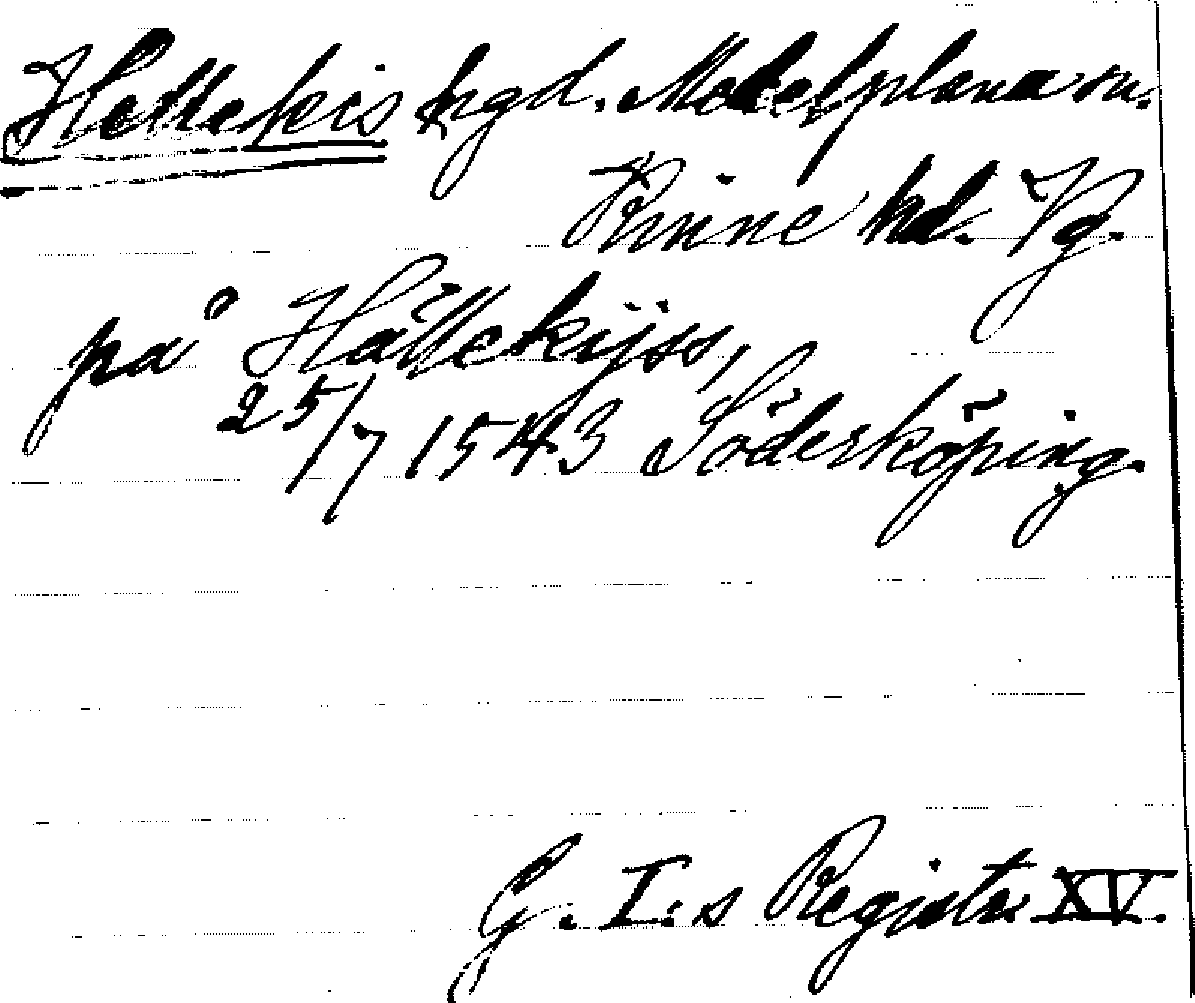 Hellekis hgd. Medelplana sn.
Kinne hd. Vg.
på Hällekijss,
25/7 1543 Söderköping.
G. I:s Registr. XV.